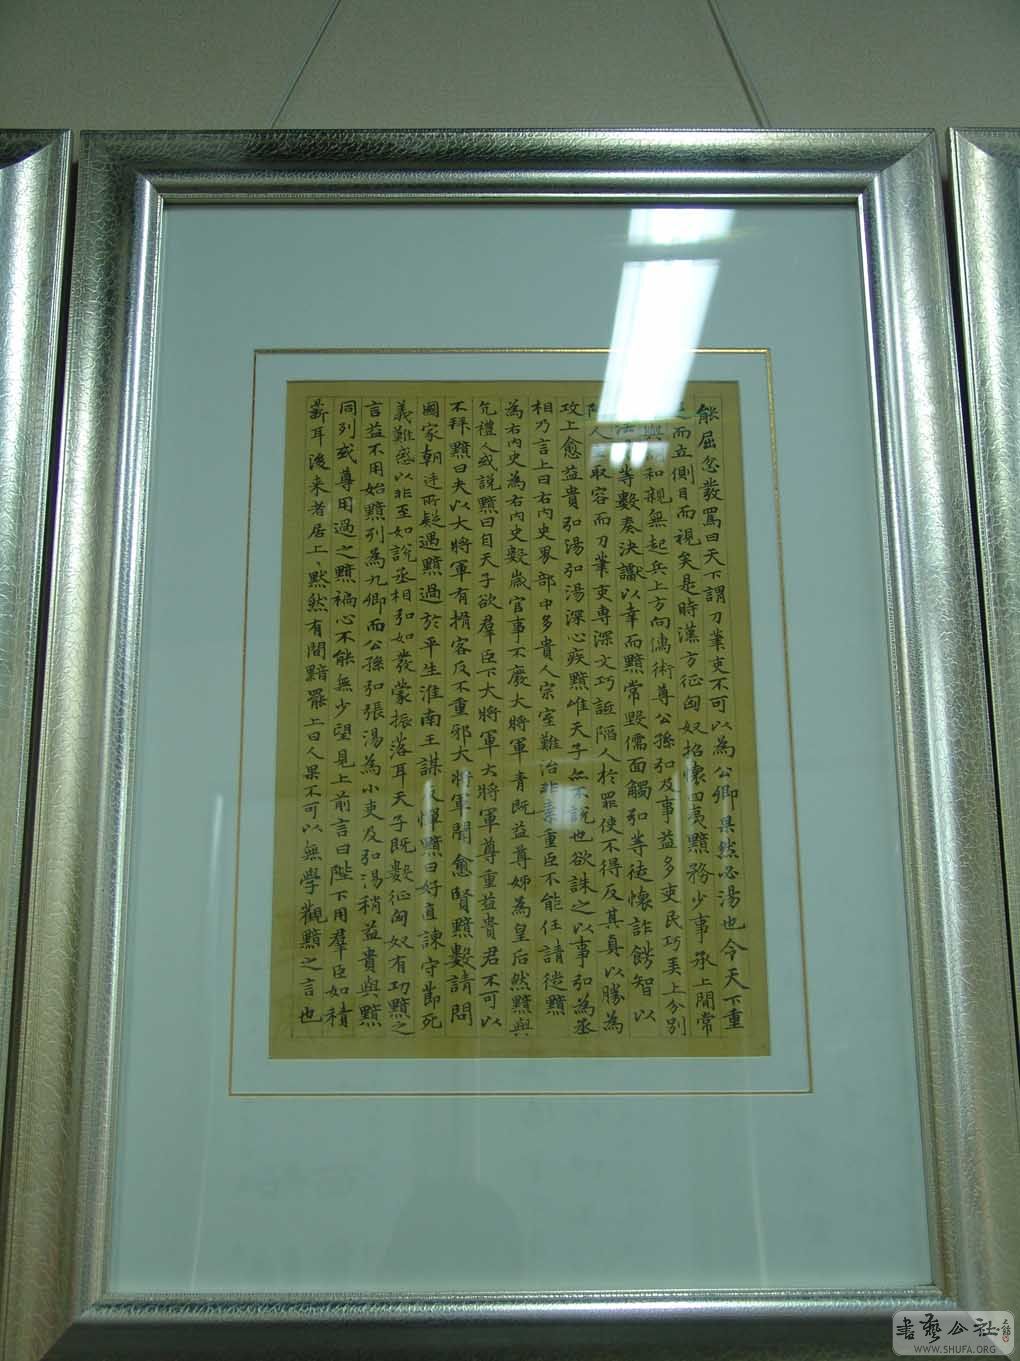 能屈忿發罵曰天下謂刀筆吏不可以為公卿果然必湯也今天下重
而立側目而視矣是時漢方征匈奴招懷四夷黯務少事承上閒常
與和親無起兵上方向儒術尊公孫弘及事益多吏民巧弄上分別
法等數奏決讞以幸而黯常毀儒面觸弘等徒懷詐飾智以
人取容而刀筆吏專深文巧詆陷人於罪使不得反其真以勝為
攻上愈益貴弘湯弘湯深心疾黯唯天子亦不說也欲誅之以事弘為丞
相乃言上曰右內史界部中多貴人宗室難治非素重臣不能任請徙黯
為右內史為右內史數歲官事不廢大將軍青既益尊姊為皇后然黯與
亢禮人或說黯曰自天子欲群臣下大將軍大將軍尊重益貴君不可以
不拜黯曰夫以大將軍有揖客反不重邪大將軍聞愈賢黯數請問
國家朝廷所疑遇黯過於平生淮南王謀反憚黯曰好直諫守節死
義難惑以非至如說丞相弘如發蒙振落耳天子既數征匈奴有功黯之
言益不用始黯列為九卿而公孫弘張湯為小吏及弘湯稍益貴與黯
同列或尊用過之黯褊心不能無少望見上前言曰陛下用群臣如積
薪耳後来者居上、默然有間黯罷上曰人果不可以無學觀黯之言也
書藝公社
WWW.SHUFA.ORG